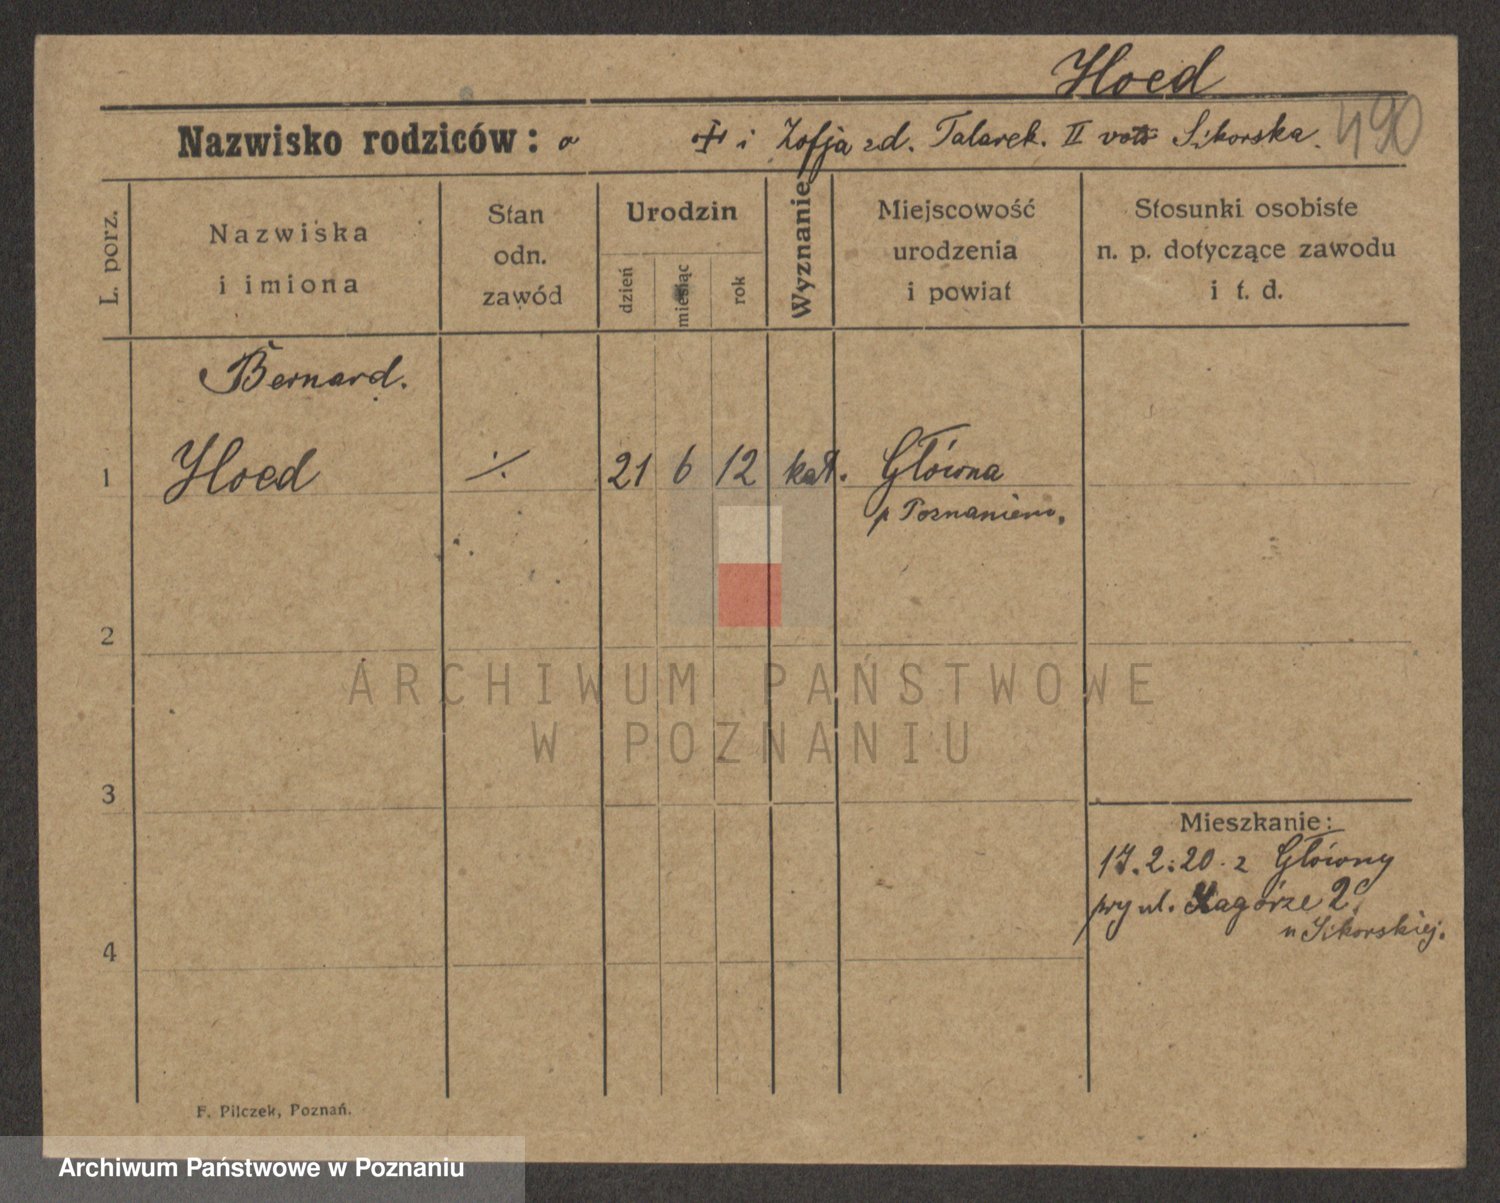 Hoed
Nazwisko rodziców: o ✝ i Zofja zd. Talarek. II voto Sikorska. 490
L. porz.
Nazwiska
i imiona
Stan
odn.
zawód
Urodzin
dzień
miesiąc
rok
Wyznanie
Miejscowość
urodzenia
i powiat
Stosunki osobiste
n. p. dotyczące zawodu
i t. d.
Bernard.
1 Hoed ·/. 21 6 12 kat. Główna
p Poznaniem.
2
3
Mieszkanie:
17.2.20. z Główny
przy ul. Zagórze 2c
u Sikorskiej.
4
F. Pilczek, Poznań.
ARCHIWUM PAŃSTWOWE
W POZNANIU
Archiwum Państwowe w Poznaniu